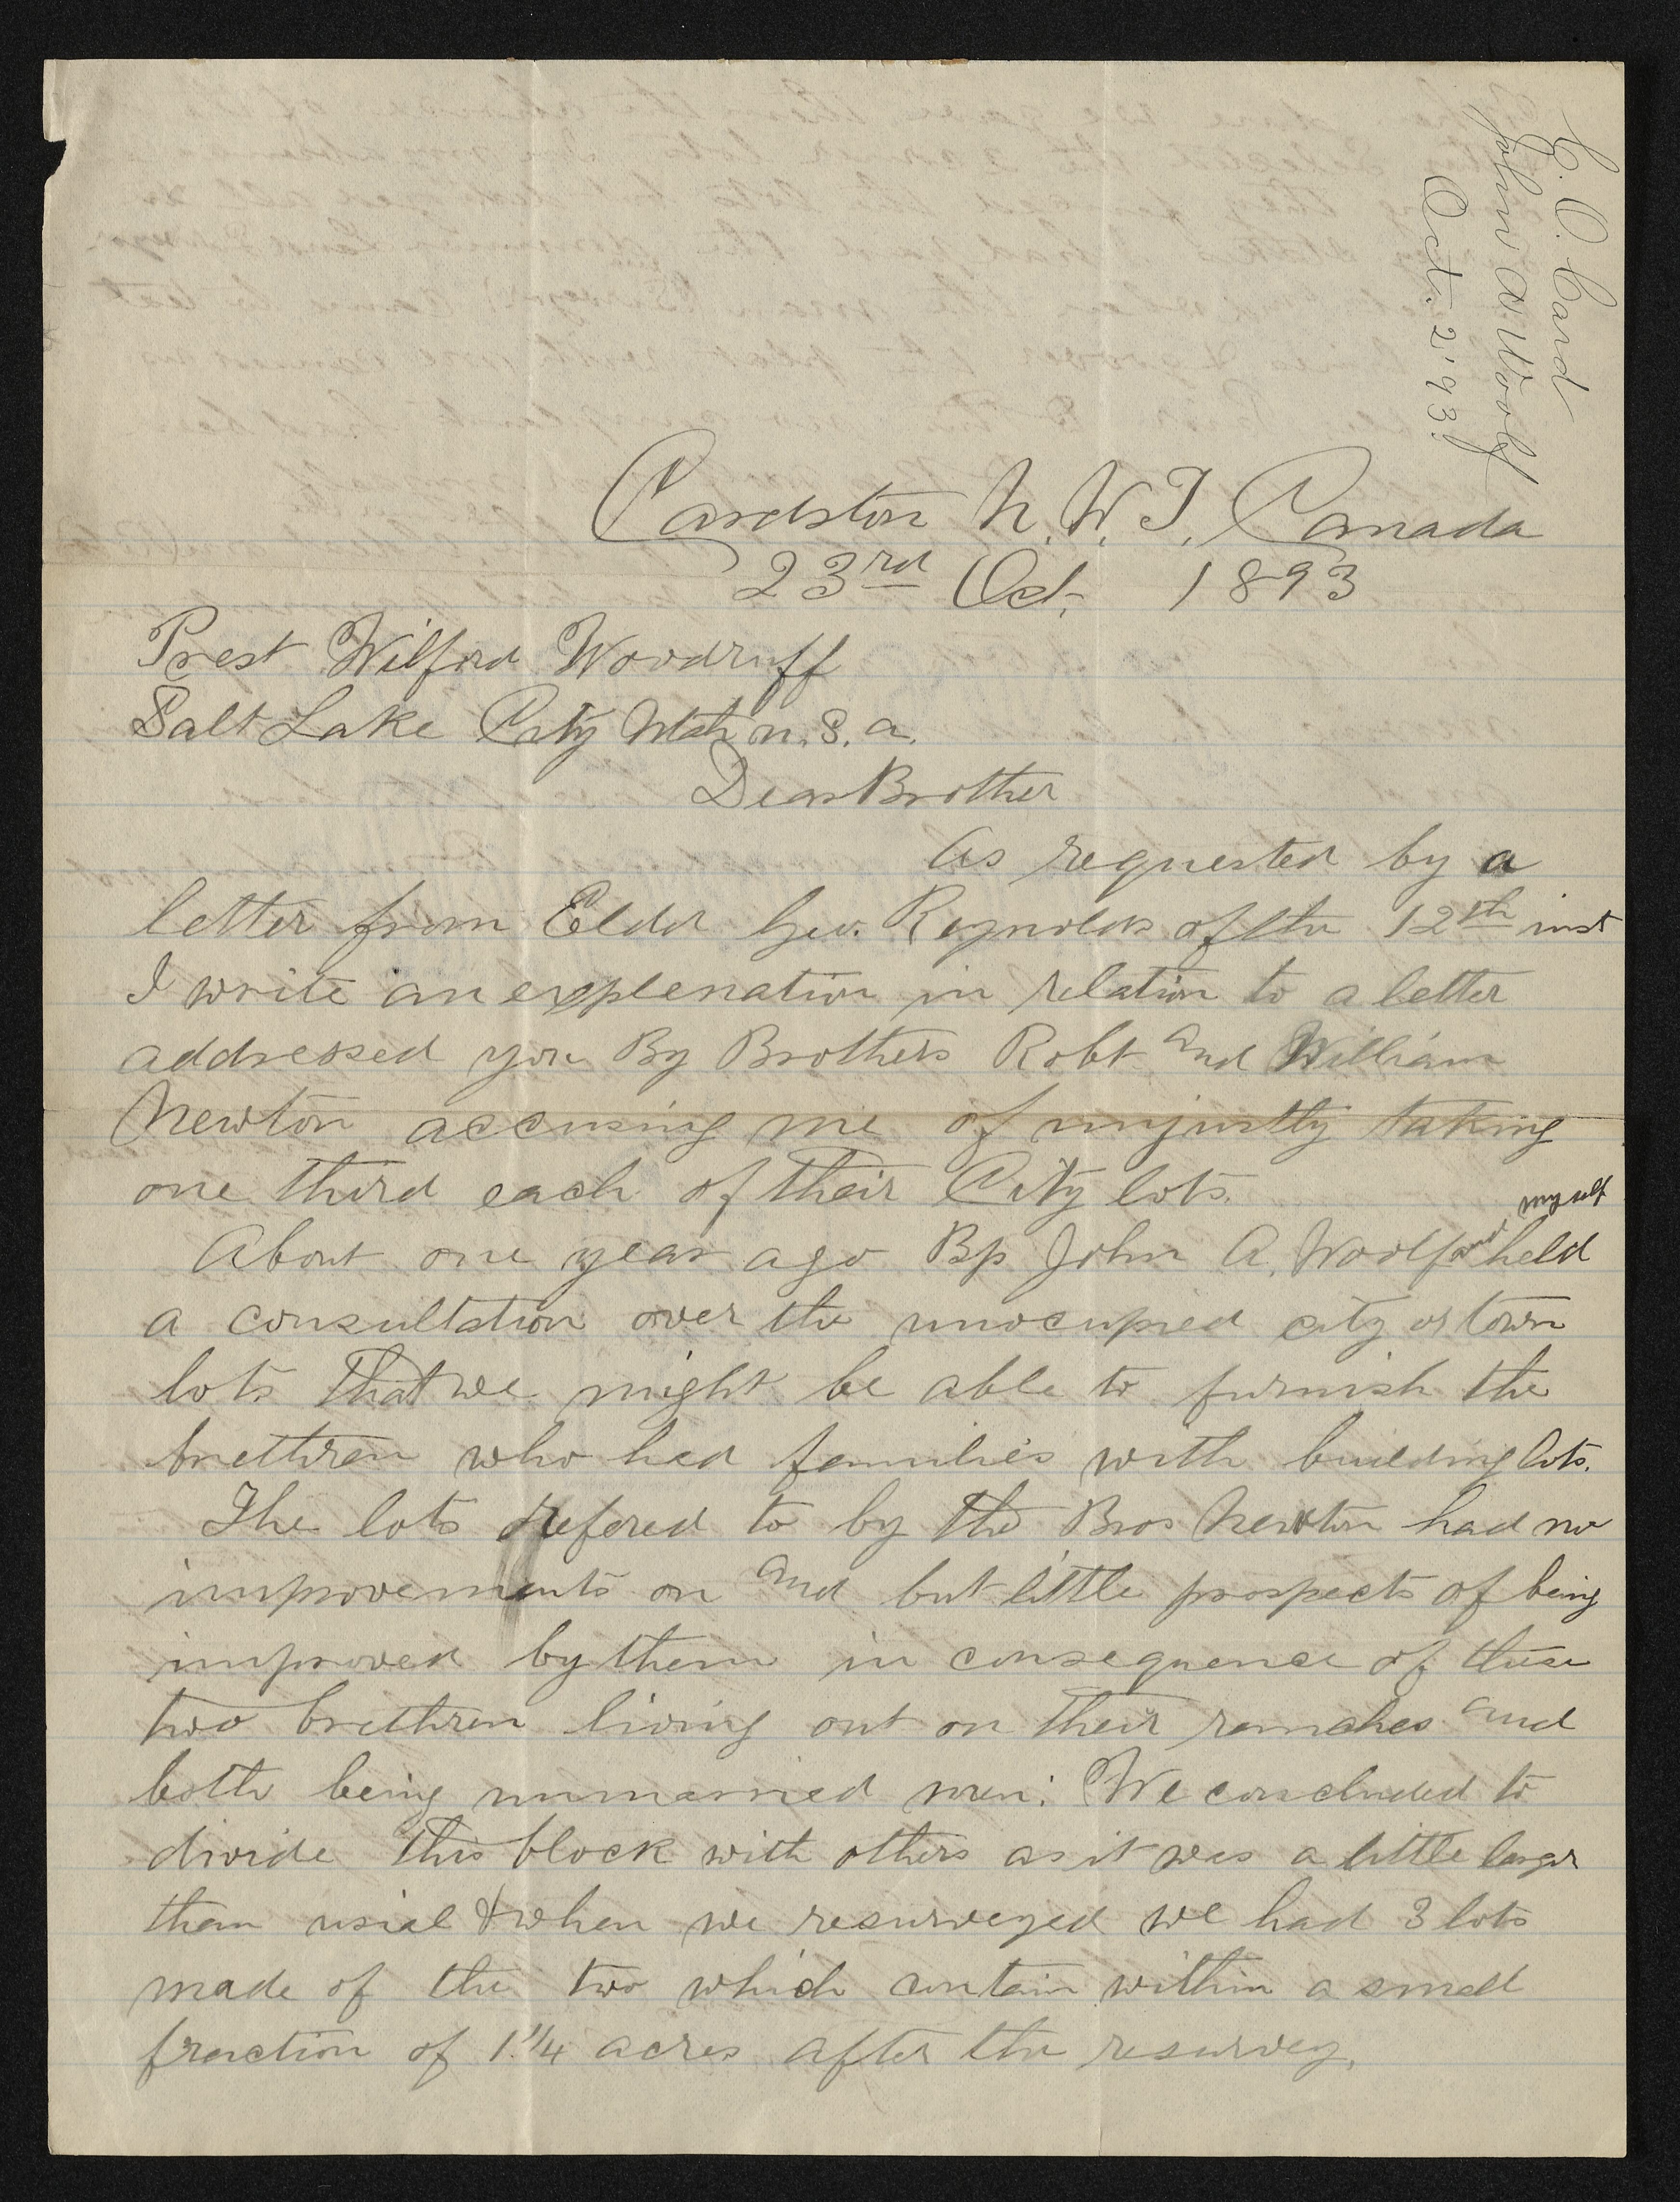 C. O. Card
John A. Woolf
Oct. 2' 93.
Cardston N. W. T., Canada
23rd Oct. 1893
Prest Wilford Woodruff
Salt Lake City Utah U. S. A.
Dear Brother
As requested by a
letter from Eldr Geo. Reynolds of the 12th inst
I write an explenation in relation to a letter
addressed you By Brothers Robt and William
Newton accusing me of unjustly taking
one third each of their City lots.
About one year ago Bp John A. Woolf and myself held
a consultation over the unocupied city or town
lots that we might be able to furnish the
brethren who had families with building lots.
The lots refered to by the Bros Newton had no
improvements on and but little prospects of being
improved by them in consequence of these
two brethren living out on their ranches and
both being unmarried men. We concluded to
divide this block with others as it was a little larger
than usial & when we resurveyed we had 3 lots
made of the two which contain within a small
fraction of 1.1/4 acres after the resurvey.